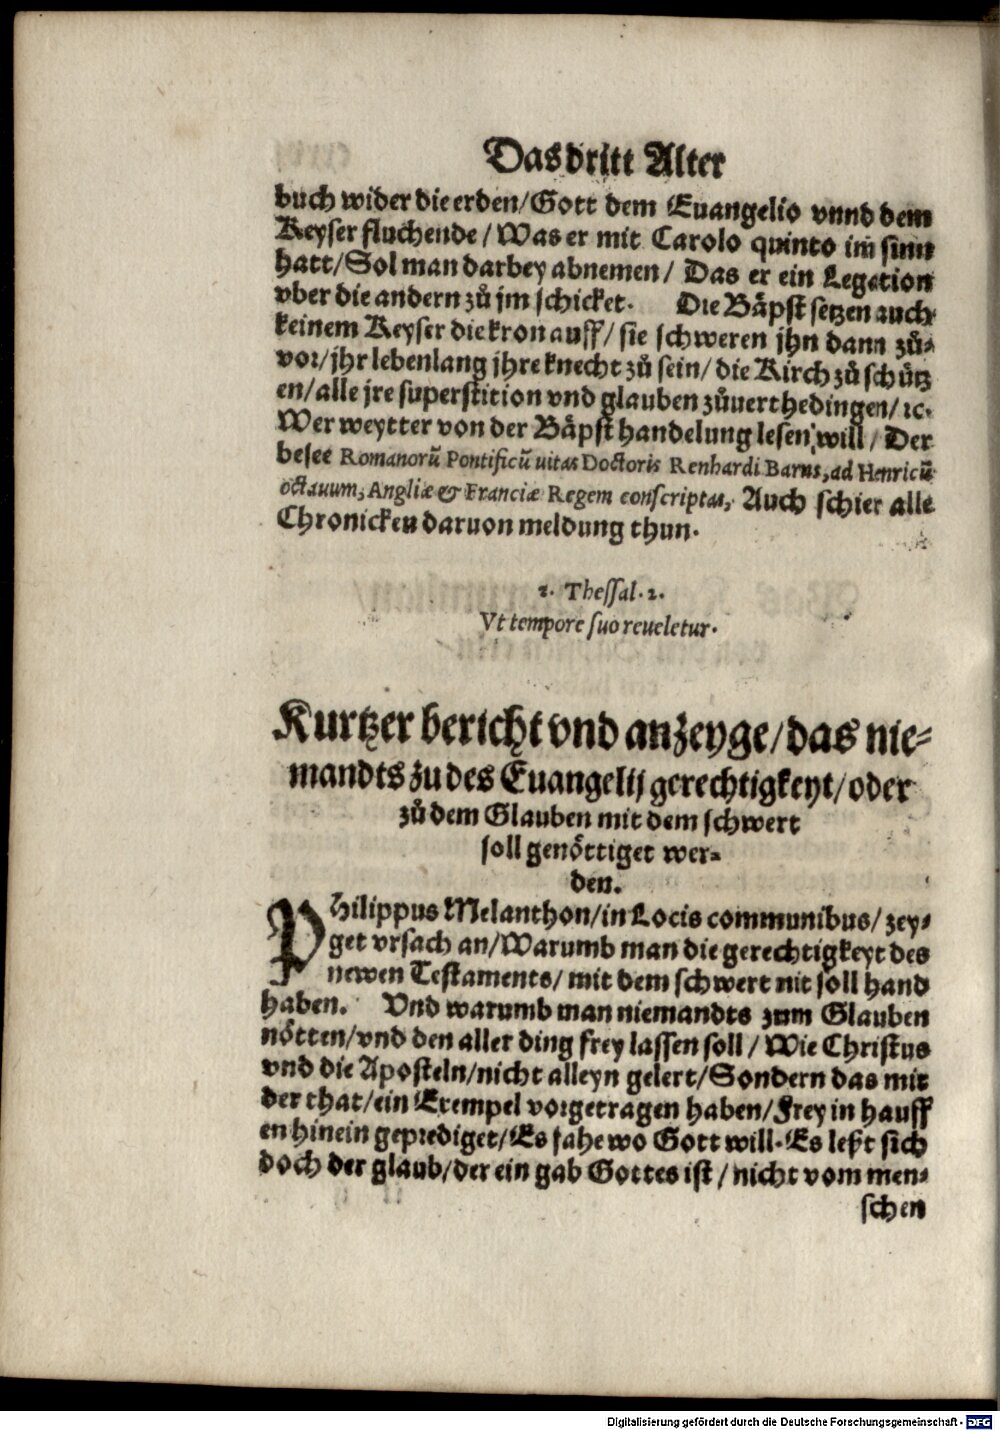 Das dritt Alter
buch wider die erden/Gott dem Euangelio vnnd dem
Keyser fluchende/Was er mit Carolo quinto im sinn
hatt/Sol man darbey abnemen/ Das er ein Legation
vber die andern zů jm schicket. Die Bäpst setzen auch
keinem Keyser die kron auff/ sie schweren jhn dann zů⸗
vor/jhr lebenlang jhre knecht zů sein/ die Kirch zů schütz
en/alle jre superstition vnd glauben zůuerthedingen/ ꝛc.
Wer weytter von der Bäpst handelung lesen will/ Der
besee Romanorũ Pontificũ uitas Doctoris Renhardi Barns, ad Henricũ
octauum, Angliæ & Franciæ Regem conscriptas, Auch schier alle
Chronicken daruon meldung thun.
2. Thessal. 2.
Vt tempore suo reueletur.
Kurtzer bericht vnd anzeyge/das nie⸗
mandts zu des Euangelij gerechtigkeyt/oder
zů dem Glauben mit dem schwert
soll genöttiget wer⸗
den.
Philippus Melanthon/in Locis communibus/ zey⸗
get vrsach an/Warumb man die gerechtigkeyt des
newen Testaments/ mit dem schwert nit soll hand
haben. Vnd warumb man niemandts zum Glauben
nötten/vnd den aller ding frey lassen soll/ Wie Christus
vnd die Aposteln/nicht alleyn gelert/Sondern das mit
der that/ein Exempel vorgetragen haben/Frey in hauff
en hinein geprediget/Es fahe wo Gott will. Es leßt sich
doch der glaub/der ein gab Gottes ist/nicht vom men⸗
schen
Digitalisierung gefördert durch die Deutsche Forschungsgemeinschaft - DFG